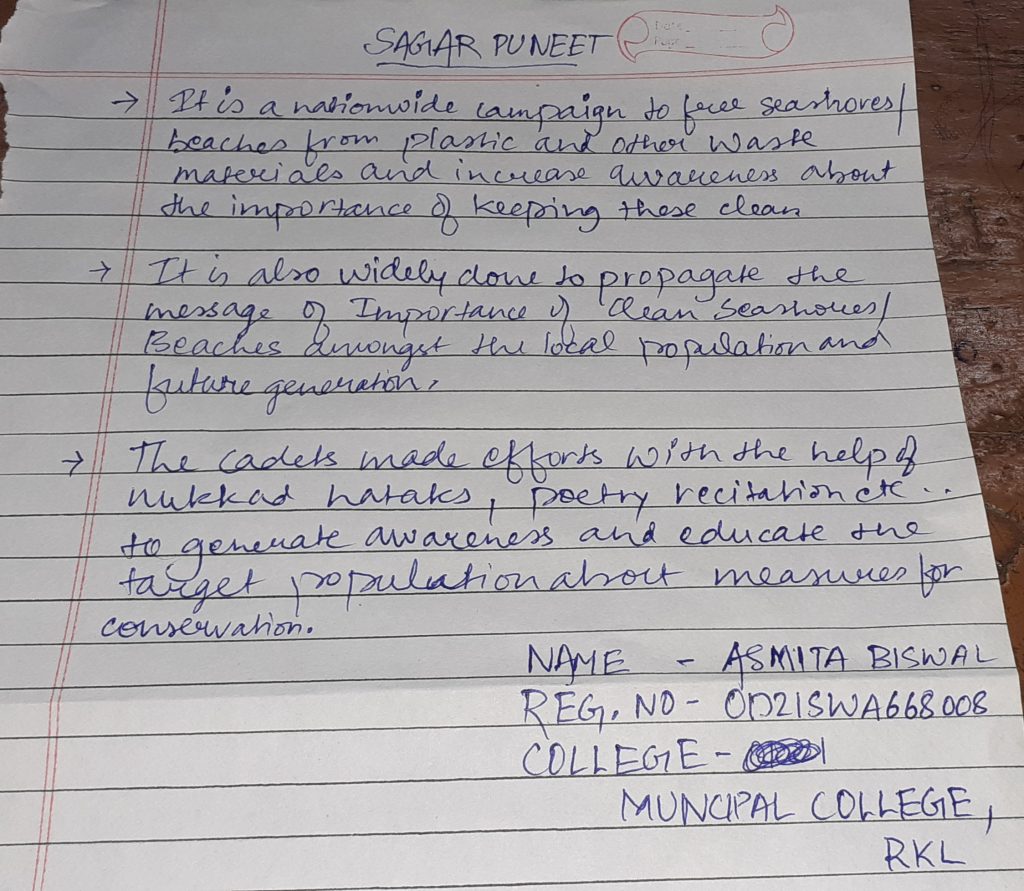 SAGAR PUNEET
Date
Page
→ It is a nationwide campaign to free seashores/
beaches from plastic and other waste
materials and increase awareness about
the importance of keeping these clean
→ It is also widely done to propagate the
message of Importance of Clean Seashores/
Beaches amongst the local population and
future generation.
→ The cadets made efforts with the help of
nukkad nataks, poetry recitation etc...
to generate awareness and educate the
target population about measures for
conservation.
NAME - ASMITA BISWAL
REG. NO - OD21SWA668008
COLLEGE -
MUNCIPAL COLLEGE,
RKL